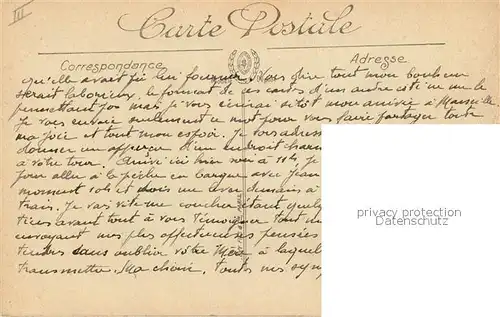 Carte Postale
Correspondance
Adresse
qu'elle avait fourni Vous dire tout mon bonheur
serait laborieux, le format de ces cartes d'un autre côté ne me le
permettant pas mais je vous écrirai sitôt mon arrivée à Marseille
Je vous envoie seulement ce mot pour vous faire partager toute
ma joie et tout mon espoir. Je
donner un aperçu d'un endroit
à votre tour. Arrivé ici hier soir à 11h, je
pour aller à la pêche en barque avec Jean
moment 10h et dois me demain à
Je vais vite me coucher étant
avant tout à vous témoigner tout
envoyant mes plus affectueuses pensées
sans oublier votre Mère à laquelle
transmettre. Ma chérie, toutes mes
privacy protection
Datenschutz